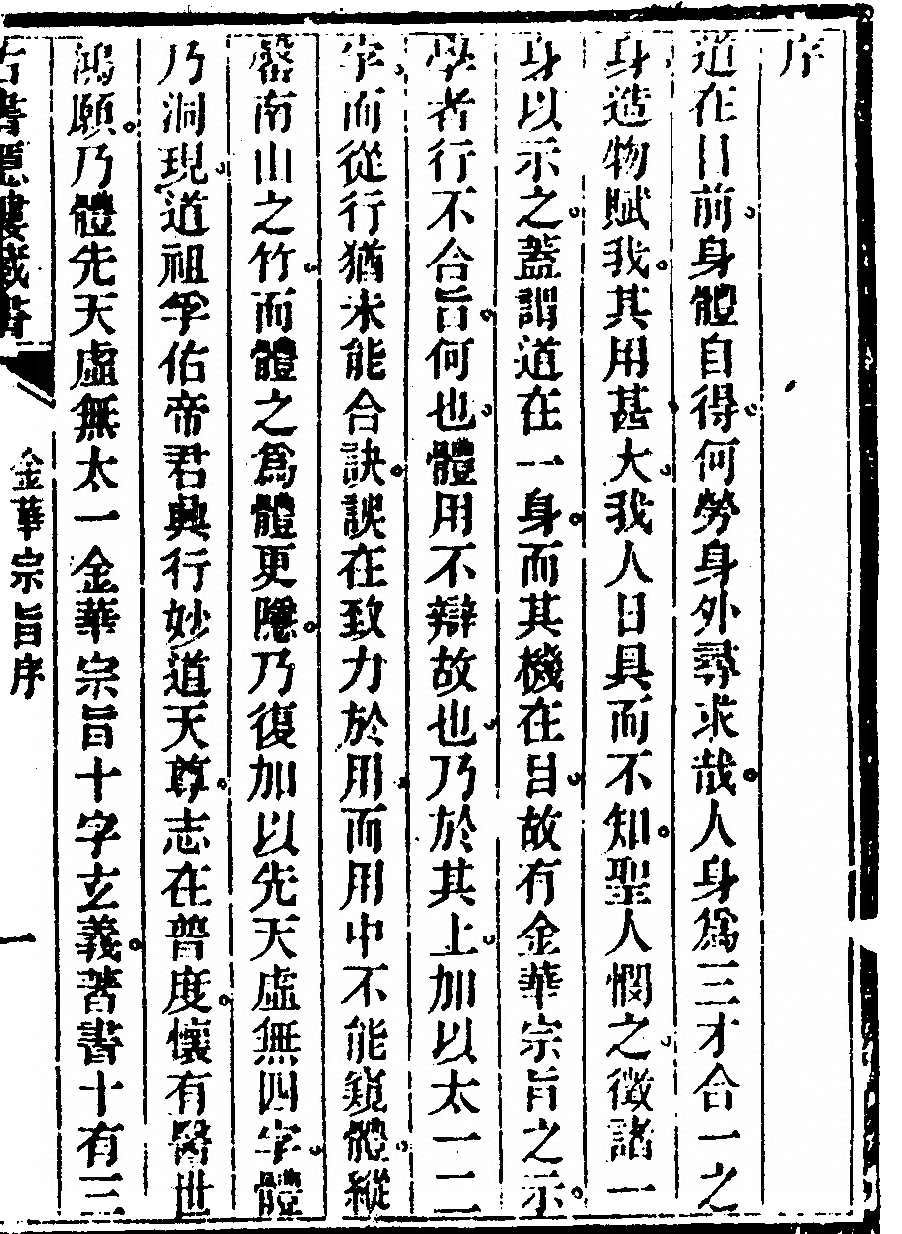 序
道在目前身體自得何勞身外尋求哉人身爲三才合一之
身造物賦我其用甚大我人日具而不知聖人憫之徵諸一
身以示之蓋謂道在一身而其機在目故有金華宗旨之示
學者行不合旨何也體用不辯故也乃於其上加以太一二
字而從行猶未能合訣誤在致力於用而用中不能窺體縱
罄南山之竹而體之爲體更隱乃復加以先天虛無四字體
乃洞現道祖孚佑帝君興行妙道天尊志在普度懷有醫世
鴻願乃體先天虛無太一金華宗旨十字玄義著書十有三
古書隱樓藏書
金華宗旨序
一